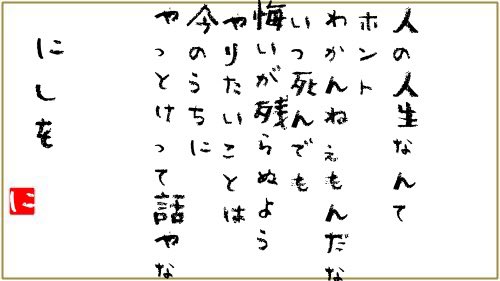 人の人生なんて
ホント
わかんねぇもんだな
いつ死んでも
悔いが残らぬよう
やりたいことは
今のうちに
やっとけって話やな
にしを
に